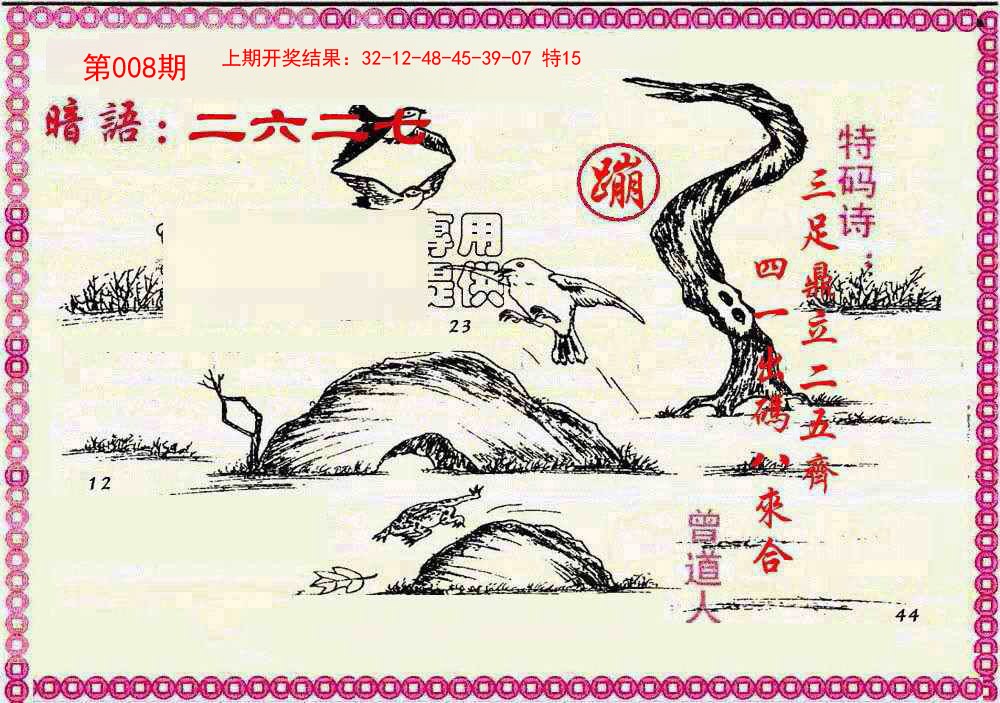 第008期
上期开奖结果：32-12-48-45-39-07 特15
暗語：二六二七
蹦
特码诗：
三足鼎立二五齊
四一出码八來合
用
23
12
曾道人
44